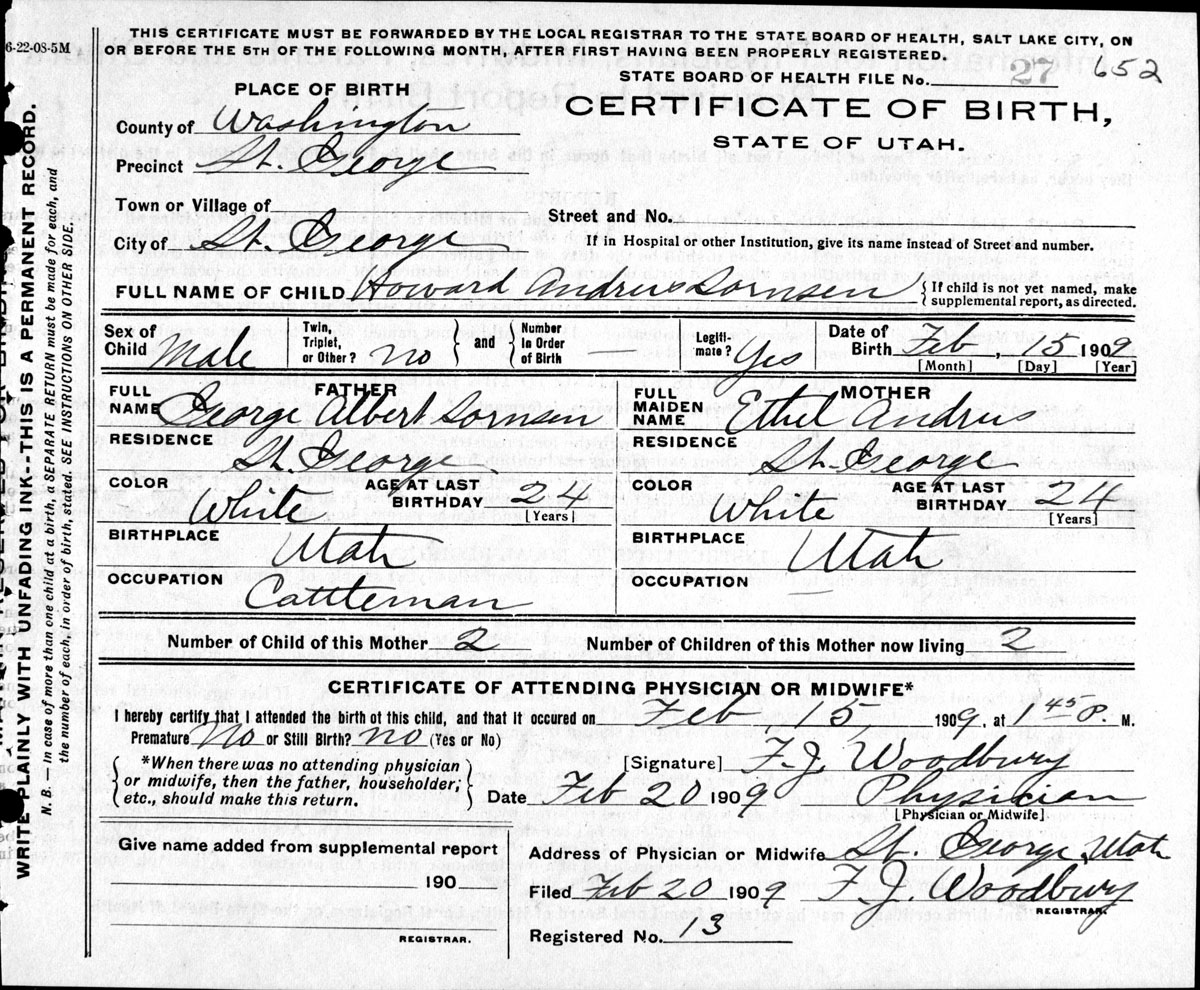 6-22-08-5M
THIS CERTIFICATE MUST BE FORWARDED BY THE LOCAL REGISTRAR TO THE STATE BOARD OF HEALTH, SALT LAKE CITY, ON
OR BEFORE THE 5TH OF THE FOLLOWING MONTH, AFTER FIRST HAVING BEEN PROPERLY REGISTERED.
STATE BOARD OF HEALTH FILE No. 27 652
PLACE OF BIRTH
CERTIFICATE OF BIRTH,
STATE OF UTAH.
County of Washington
Precinct St. George
Town or Village of
Street and No.
City of St. George
If in Hospital or other Institution, give its name instead of Street and number.
FULL NAME OF CHILD Howard Andrus Sornsen { If child is not yet named, make supplemental report, as directed.
Sex of Child Male
Twin, Triplet, or Other? no } and { Number In Order of Birth
Legitimate? Yes
Date of Birth Feb, 15 1909
[Month] [Day] [Year]
FATHER
FULL NAME George Albert Sornsen
RESIDENCE
St. George
COLOR White AGE AT LAST BIRTHDAY 24
[Years]
BIRTHPLACE
Utah
OCCUPATION
Cattleman
MOTHER
FULL MAIDEN NAME Ethel Andrus
RESIDENCE
St. George
COLOR White AGE AT LAST BIRTHDAY 24
[Years]
BIRTHPLACE
Utah
OCCUPATION
Number of Child of this Mother 2 Number of Children of this Mother now living 2
CERTIFICATE OF ATTENDING PHYSICIAN OR MIDWIFE*
I hereby certify that I attended the birth of this child, and that it occured on Feb 15 1909, at 1 45 P. M.
Premature No or Still Birth? no (Yes or No)
{ *When there was no attending physician
or midwife, then the father, householder,
etc., should make this return. }
[Signature] F. J. Woodbury
Date Feb 20 1909 Physician
[Physician or Midwife].
Give name added from supplemental report
190
REGISTRAR.
Address of Physician or Midwife St. George, Utah
Filed Feb 20 1909 F. J. Woodbury
REGISTRAR.
Registered No. 13
WRITE PLAINLY WITH UNFADING INK--THIS IS A PERMANENT RECORD.
N. B. — In case of more than one child at a birth, a SEPARATE RETURN must be made for each, and
the number of each, in order of birth, stated. SEE INSTRUCTIONS ON OTHER SIDE.